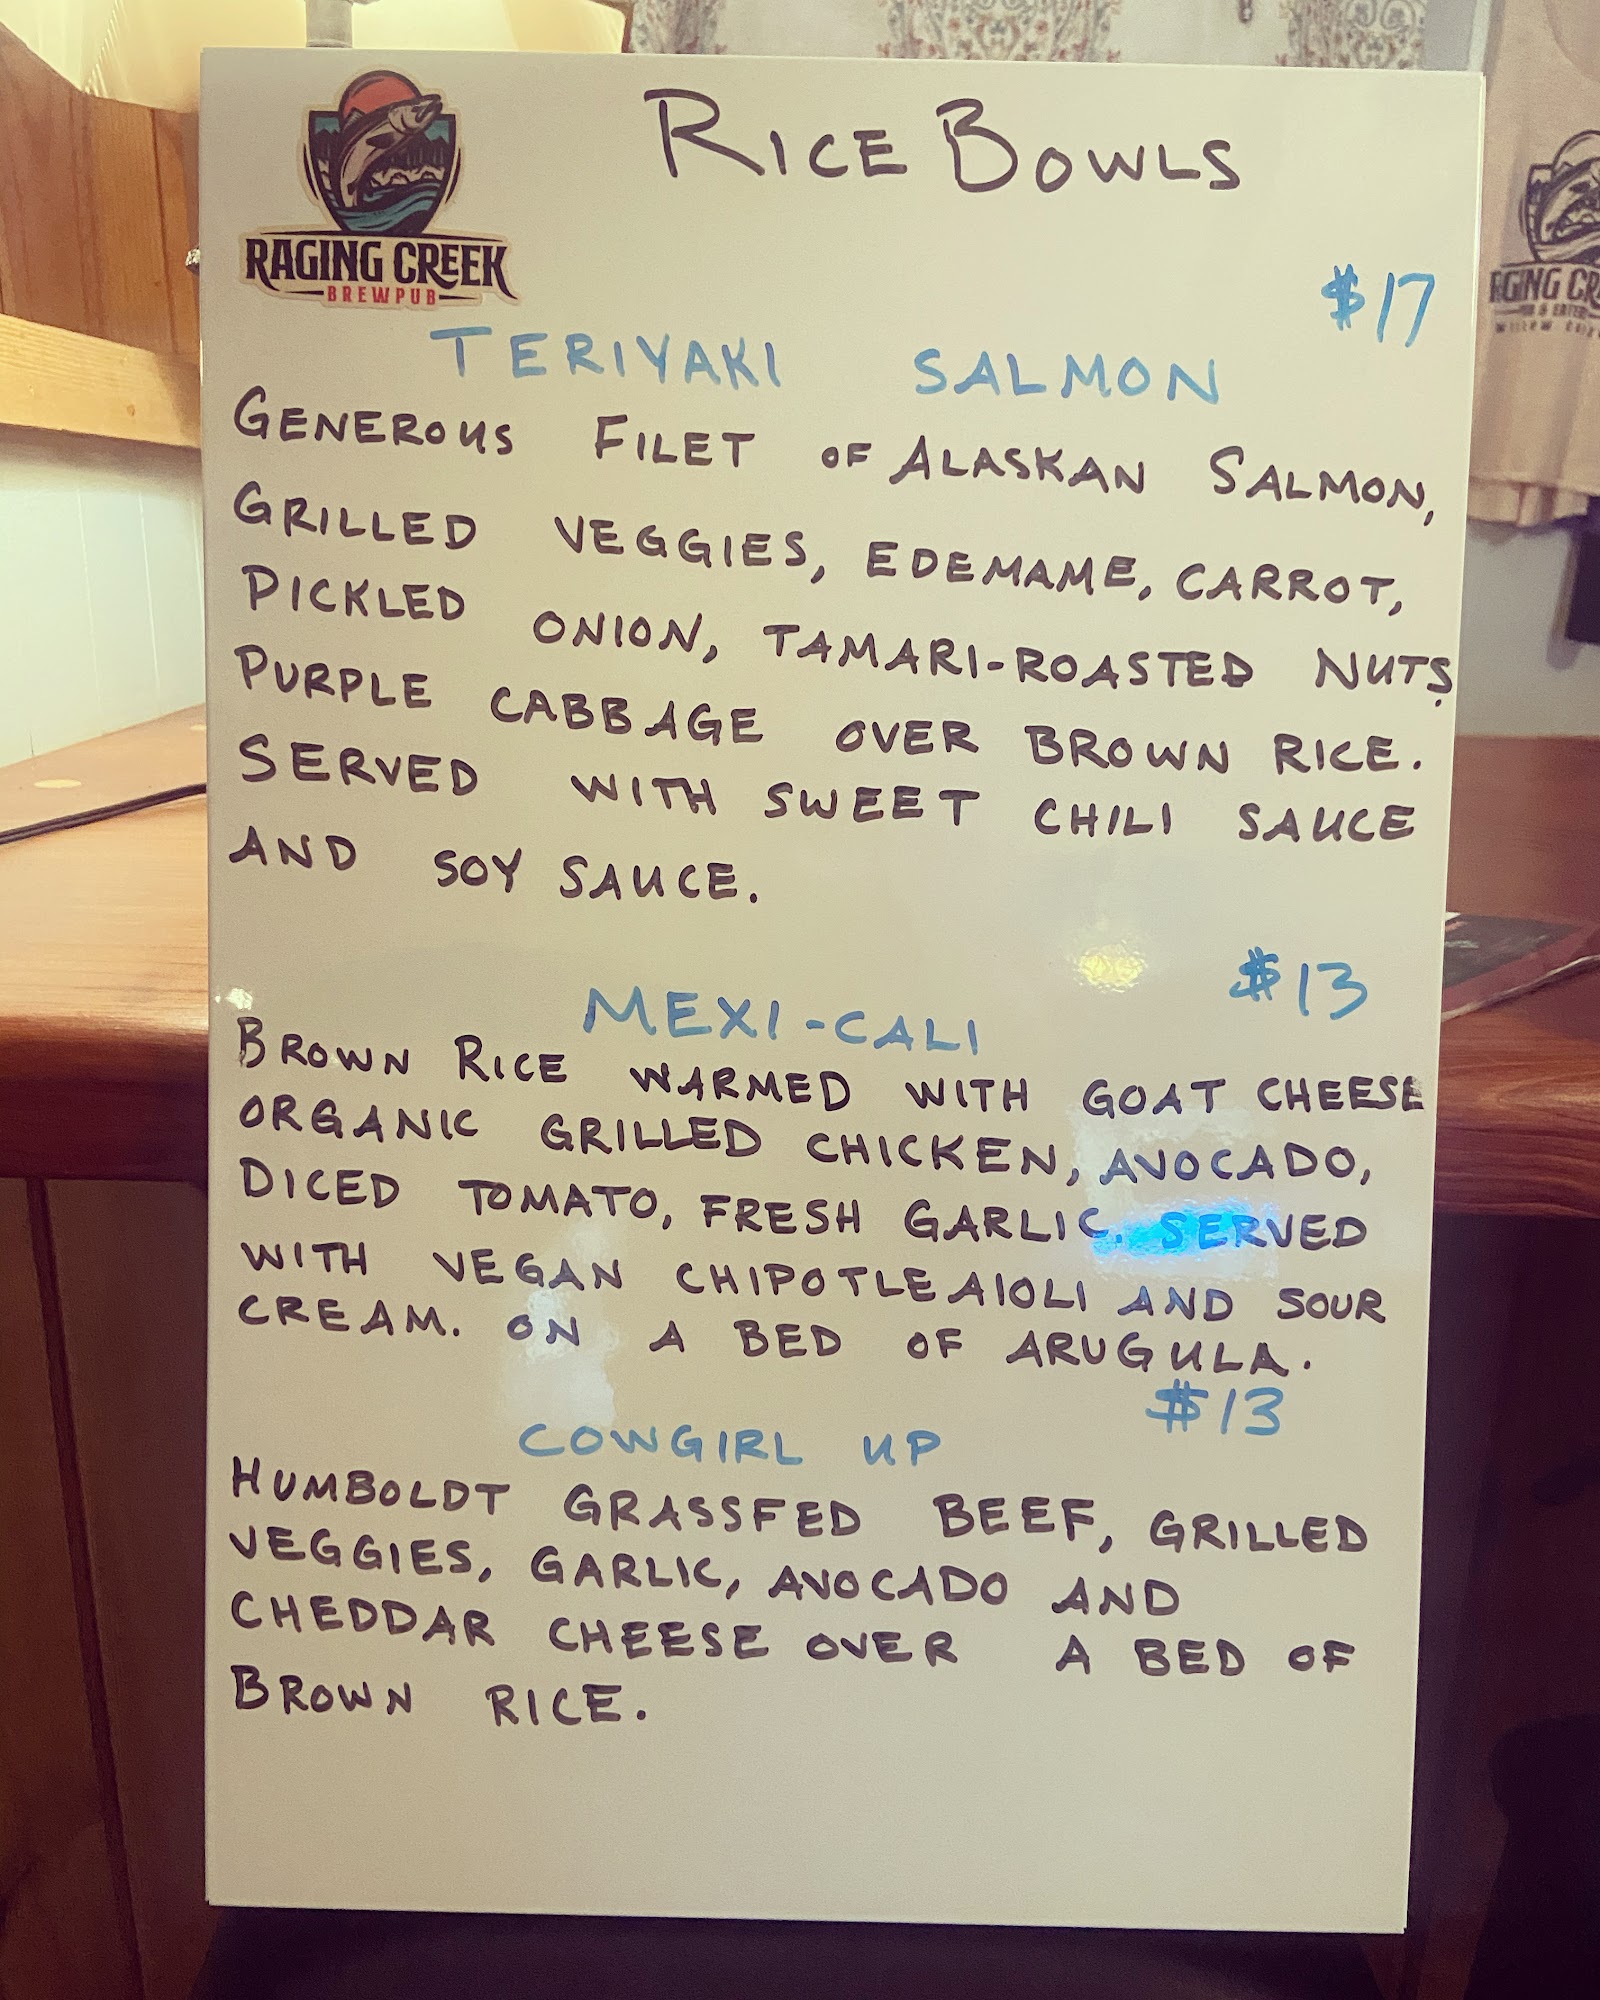 RICE BOWLS
RAGING CREEK
BREWPUB
$17
TERIYAKI SALMON
GENEROUS FILET OF ALASKAN SALMON,
GRILLED VEGGIES, EDEMAME, CARROT,
PICKLED ONION, TAMARI-ROASTED NUTS,
PURPLE CABBAGE OVER BROWN RICE.
SERVED WITH SWEET CHILI SAUCE
AND SOY SAUCE.
$13
MEXI-CALI
BROWN RICE WARMED WITH GOAT CHEESE
ORGANIC GRILLED CHICKEN, AVOCADO,
DICED TOMATO, FRESH GARLIC. SERVED
WITH VEGAN CHIPOTLE AIOLI AND SOUR
CREAM. ON A BED OF ARUGULA.
$13
COWGIRL UP
HUMBOLDT GRASSFED BEEF, GRILLED
VEGGIES, GARLIC, AVOCADO AND
CHEDDAR CHEESE OVER A BED OF
BROWN RICE.